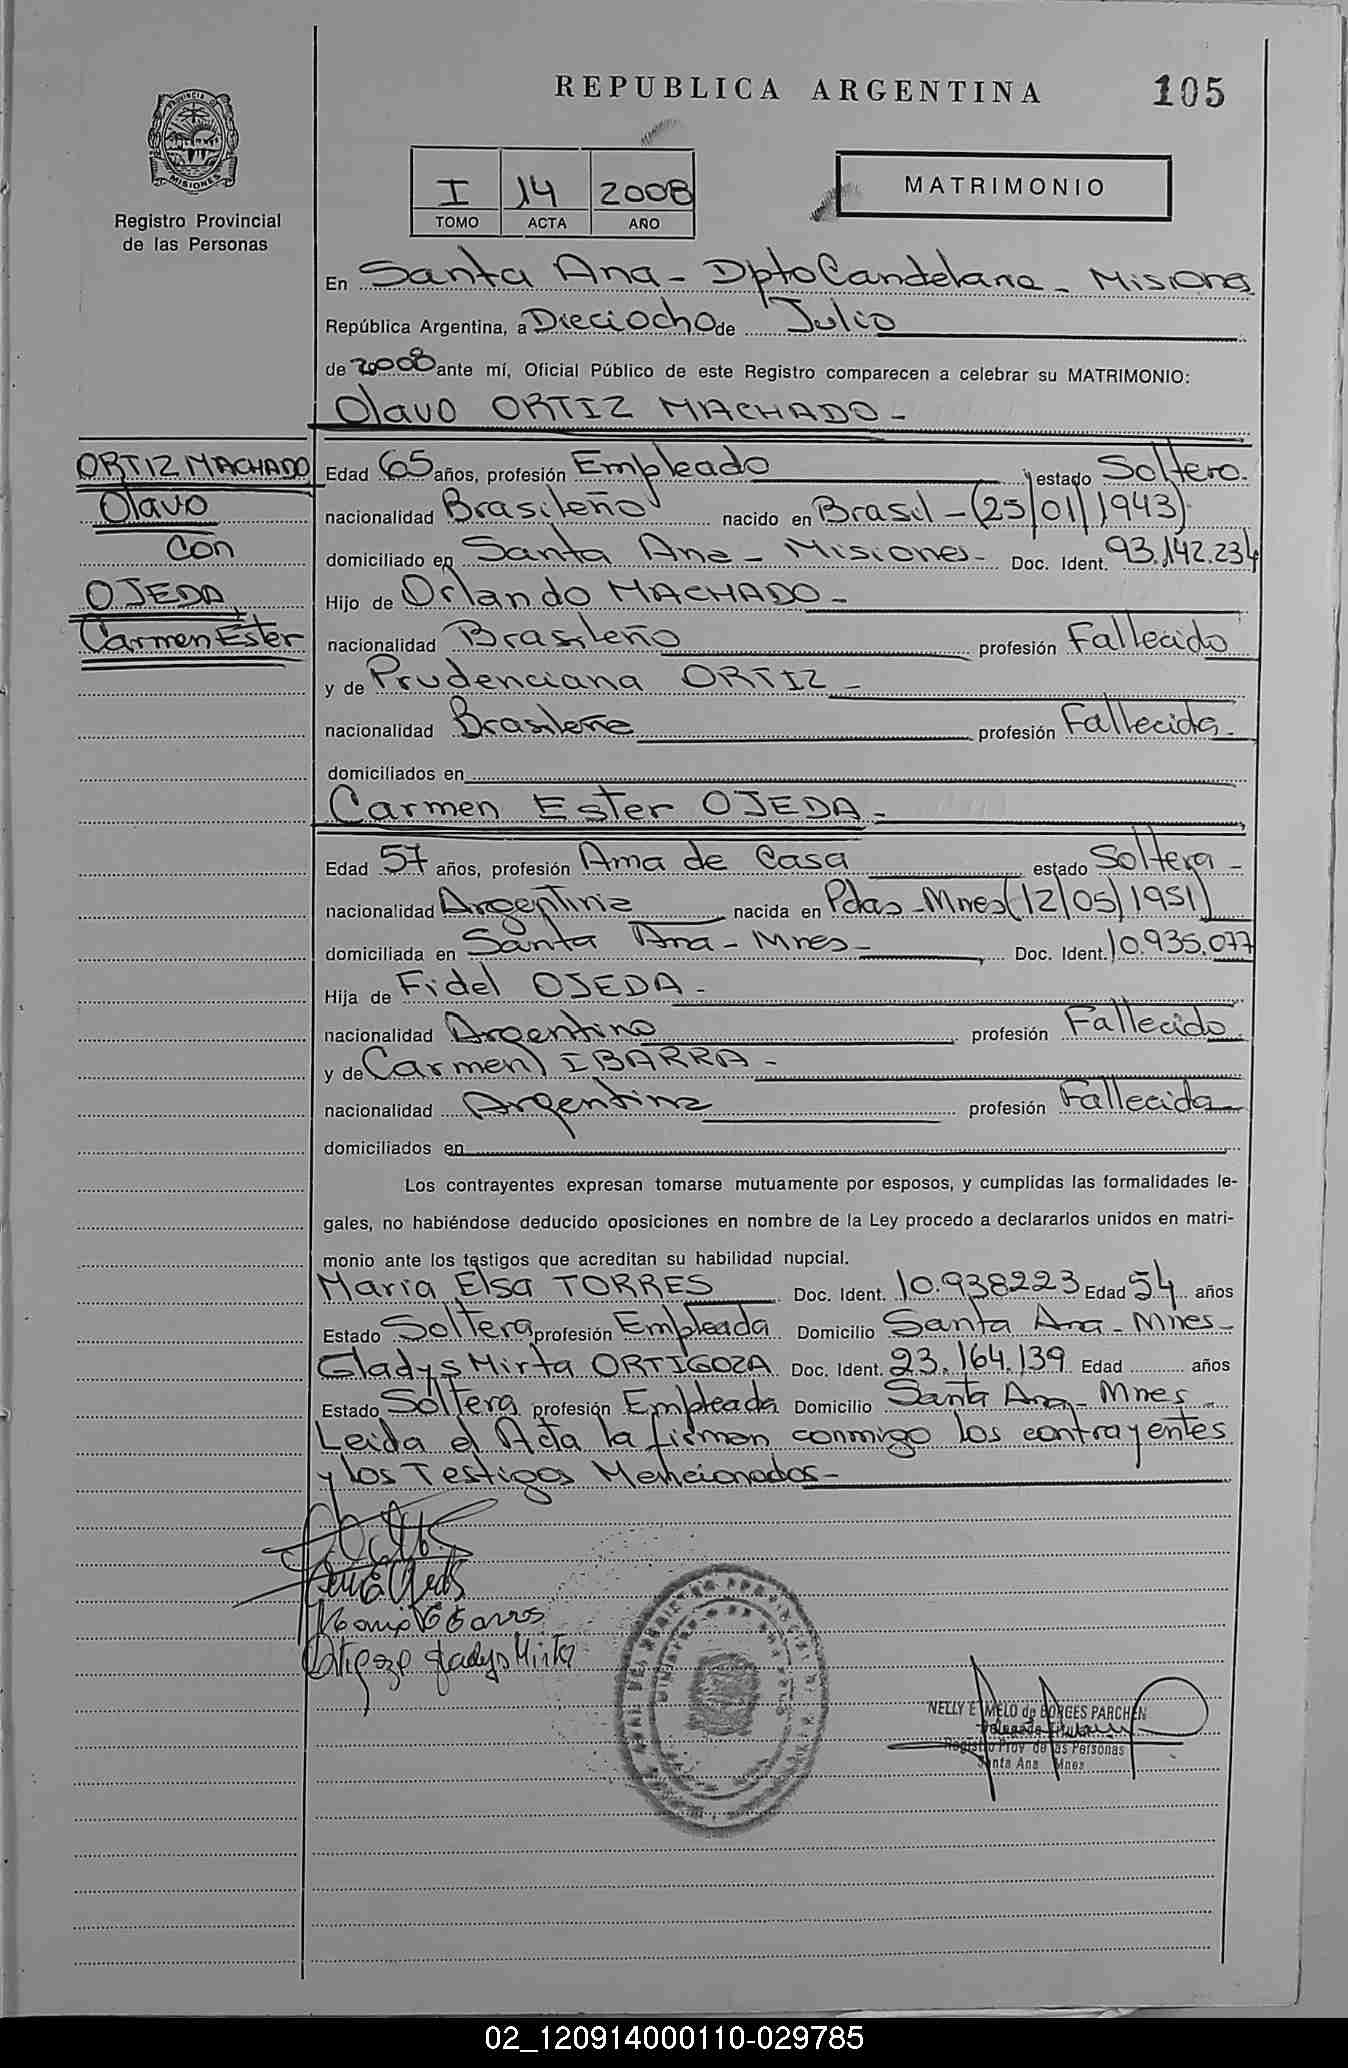 REPUBLICA ARGENTINA 105
PROVINCIA DE MISIONES
Registro Provincial
de las Personas
I 14 2008
TOMO ACTA AÑO
MATRIMONIO
En Santa Ana - Dpto Candelaria - Misiones
República Argentina, a Dieciocho de Julio
de 2008 ante mí, Oficial Público de este Registro comparecen a celebrar su MATRIMONIO:
Olavo ORTIZ MACHADO -
ORTIZ MACHADO
Olavo
con
OJEDA
Carmen Ester
Edad 65 años, profesión Empleado estado Soltero.
nacionalidad Brasileño nacido en Brasil - (25/01/1943)
domiciliado en Santa Ana - Misiones - Doc. Ident. 93.142.234
Hijo de Orlando MACHADO -
nacionalidad Brasileño profesión Fallecido
y de Prudenciana ORTIZ -
nacionalidad Brasileña profesión Fallecida -
domiciliados en
Carmen Ester OJEDA -
Edad 57 años, profesión Ama de Casa estado Soltera -
nacionalidad Argentina nacida en Pdas - Mnes (12/05/1951)
domiciliada en Santa Ana - Mnes - Doc. Ident. 10.935.077
Hija de Fidel OJEDA -
nacionalidad Argentino profesión Fallecido
y de Carmen IBARRA -
nacionalidad Argentina profesión Fallecida
domiciliados en
Los contrayentes expresan tomarse mutuamente por esposos, y cumplidas las formalidades le-
gales, no habiéndose deducido oposiciones en nombre de la Ley procedo a declararlos unidos en matri-
monio ante los testigos que acreditan su habilidad nupcial.
Maria Elsa TORRES Doc. Ident. 10.938223 Edad 54 años
Estado Soltera profesión Empleada Domicilio Santa Ana - Mnes -
Gladys Mirta ORTIGOZA Doc. Ident. 23.164.139 Edad años
Estado Soltera profesión Empleada Domicilio Santa Ana - Mnes
Leida el Acta la firman conmigo los contrayentes
y los Testigos Mencionados -
Ortigoza Gladys Mirta
NELLY E MELO de BORGES PARCHEN
Delegada Titular
Registro Prov de las Personas
Santa Ana Mnes
02_120914000110-029785